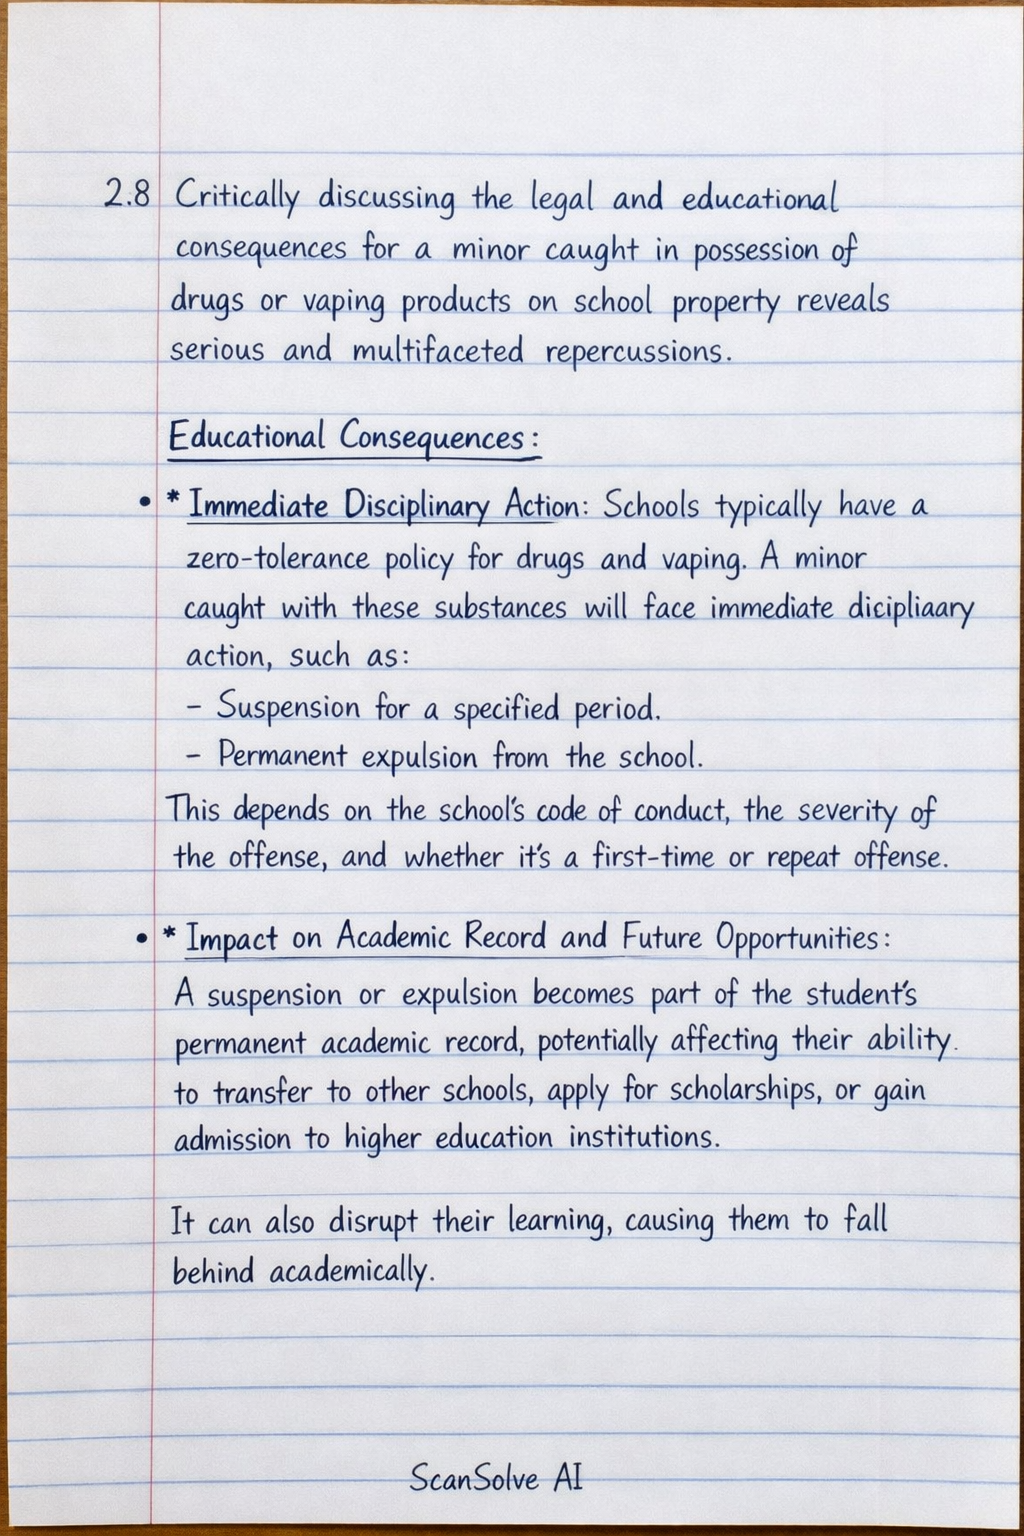 2.8 Critically discussing the legal and educational
consequences for a minor caught in possession of
drugs or vaping products on school property reveals
serious and multifaceted repercussions.
Educational Consequences:
• * Immediate Disciplinary Action: Schools typically have a
zero-tolerance policy for drugs and vaping. A minor
caught with these substances will face immediate dicipliaary
action, such as:
– Suspension for a specified period.
– Permanent expulsion from the school.
This depends on the school's code of conduct, the severity of
the offense, and whether it's a first-time or repeat offense.
• * Impact on Academic Record and Future Opportunities:
A suspension or expulsion becomes part of the student's
permanent academic record, potentially affecting their ability.
to transfer to other schools, apply for scholarships, or gain
admission to higher education institutions.
It can also disrupt their learning, causing them to fall
behind academically.
ScanSolve AI